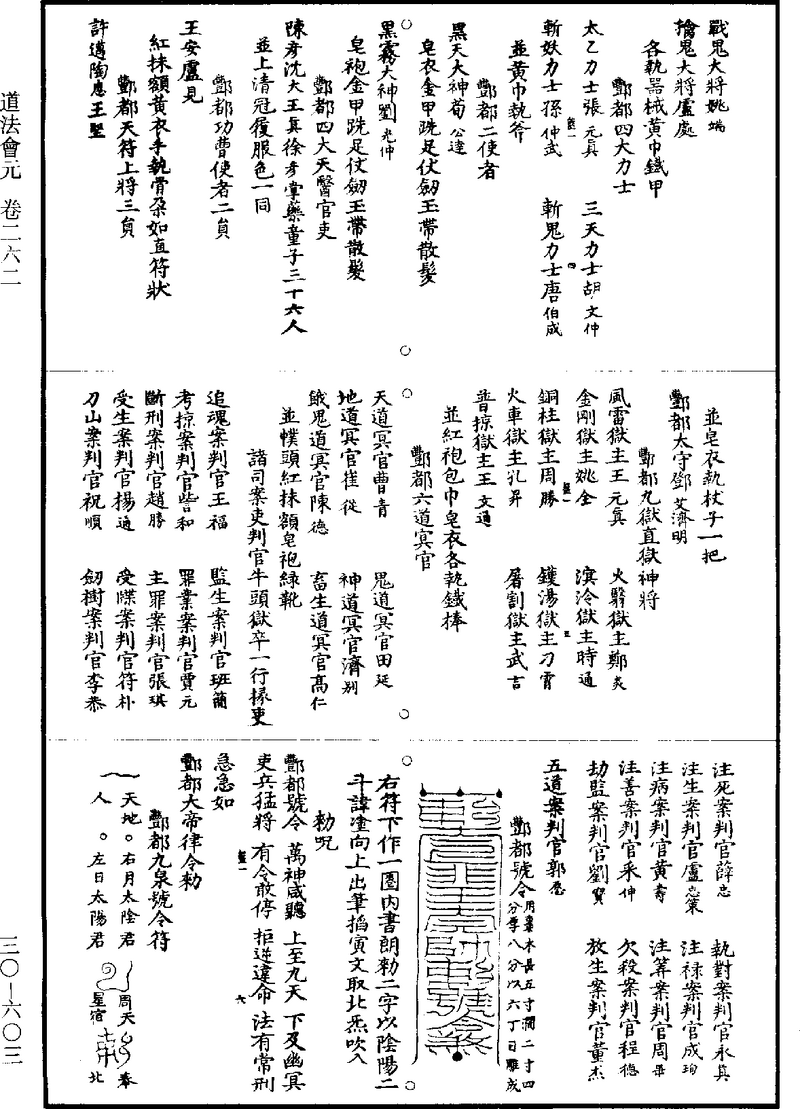 道法會元　卷二六二
戰鬼大將姚端
擒鬼大將盧處
各執器械黃巾鐵甲
酆都四大力士
太乙力士張元真　三天力士胡文仲
斬妖力士孫仲武　斬鬼力士唐伯成
並黃巾執斧
酆都二使者
黑天大神荀公達
皂衣金甲跣足仗劒玉帶散髮
黑霧大神劉光仲
皂袍金甲跣足仗劒玉帶散髮
酆都四大天醫官吏
陳彥沈大王真徐彥掌藥童子三十六人
並上清冠履服色一同
酆都功曹使者二員
王安盧見
紅抹額黃衣手執骨朵如直符狀
酆都天符上將三員
許邁陶應王堅
並皂衣執杖子一把
酆都太守鄧艾濟明
酆都九獄直獄神將
風雷獄主王元真　火翳獄主鄭炎
金剛獄主姚全　溟泠獄主時通
銅柱獄主周勝　鑊湯獄主刁霄
火車獄主孔昇　屠割獄主武吉
普掠獄主王文通
並紅袍包巾皂衣各執鐵棒
酆都六道冥官
天道冥官曹青　鬼道冥官田延
地道冥官崔從　神道冥官濟別
餓鬼道冥官陳德　畜生道冥官高仁
並幞頭紅抹額皂袍綠靴
諸司案吏判官牛頭獄卒一行掾吏
追魂案判官王福　監生案判官班簡
考掠案判官訾和　罪業案判官賈元
斷刑案判官趙勝　主罪案判官張琪
受生案判官楊通　受牒案判官符朴
刀山案判官祝順　劒樹案判官李恭
注死案判官薛忠　執對案判官永真
注生案判官盧忠策　注祿案判官成珣
注病案判官黃壽　注筭案判官周
注善案判官　仲　欠殺案判官程德
劫監案判官劉寶　放生案判官董杰
五道案判官郭
酆都號令用棗木長五寸濶二寸四分厚八分以六丁日雕成
右符下作一圈內書朗勑二字以陰陽二
斗諱塗向上出筆搯寅文取北炁吹入
勑呪
酆都號令　萬神咸聽　上至九天　下及幽冥
吏兵猛將　有令敢停　拒逆違命　法有常刑
急急如
酆都大帝律令勑
酆都九泉號令符
天地。右月太陰君　周天
人　。左日太陽君　星宿　奉　北
三〇—六〇三